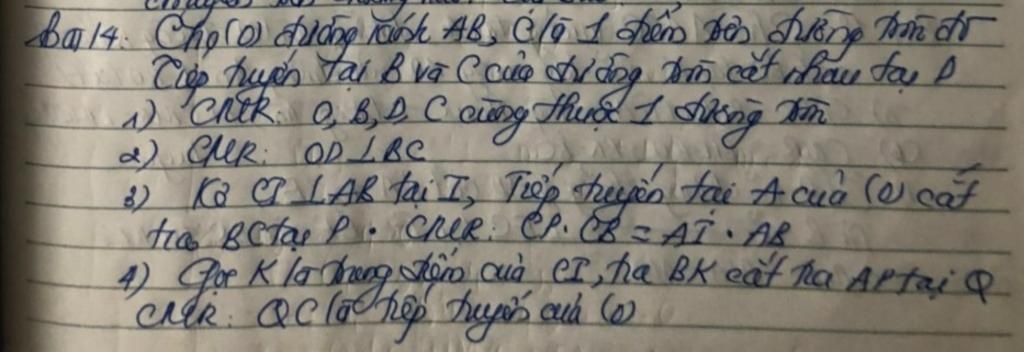 Bài 4: Cho (O) đường kính AB, C là 1 điểm trên đường tròn đó
Tiếp tuyến tại B và C của đường tròn cắt nhau tại D
1) CMR: O, B, D, C cùng thuộc 1 đường tròn
2) CMR: OD ⊥ BC
3) Kẻ CI ⊥ AB tại I, Tiếp tuyến tại A của (O) cắt
tia BC tại P. CMR: CP. CB = AI. AB
4) Gọi K là trung điểm của CI, tia BK cắt tia AP tại Q
CMR: QC là tiếp tuyến của (O)